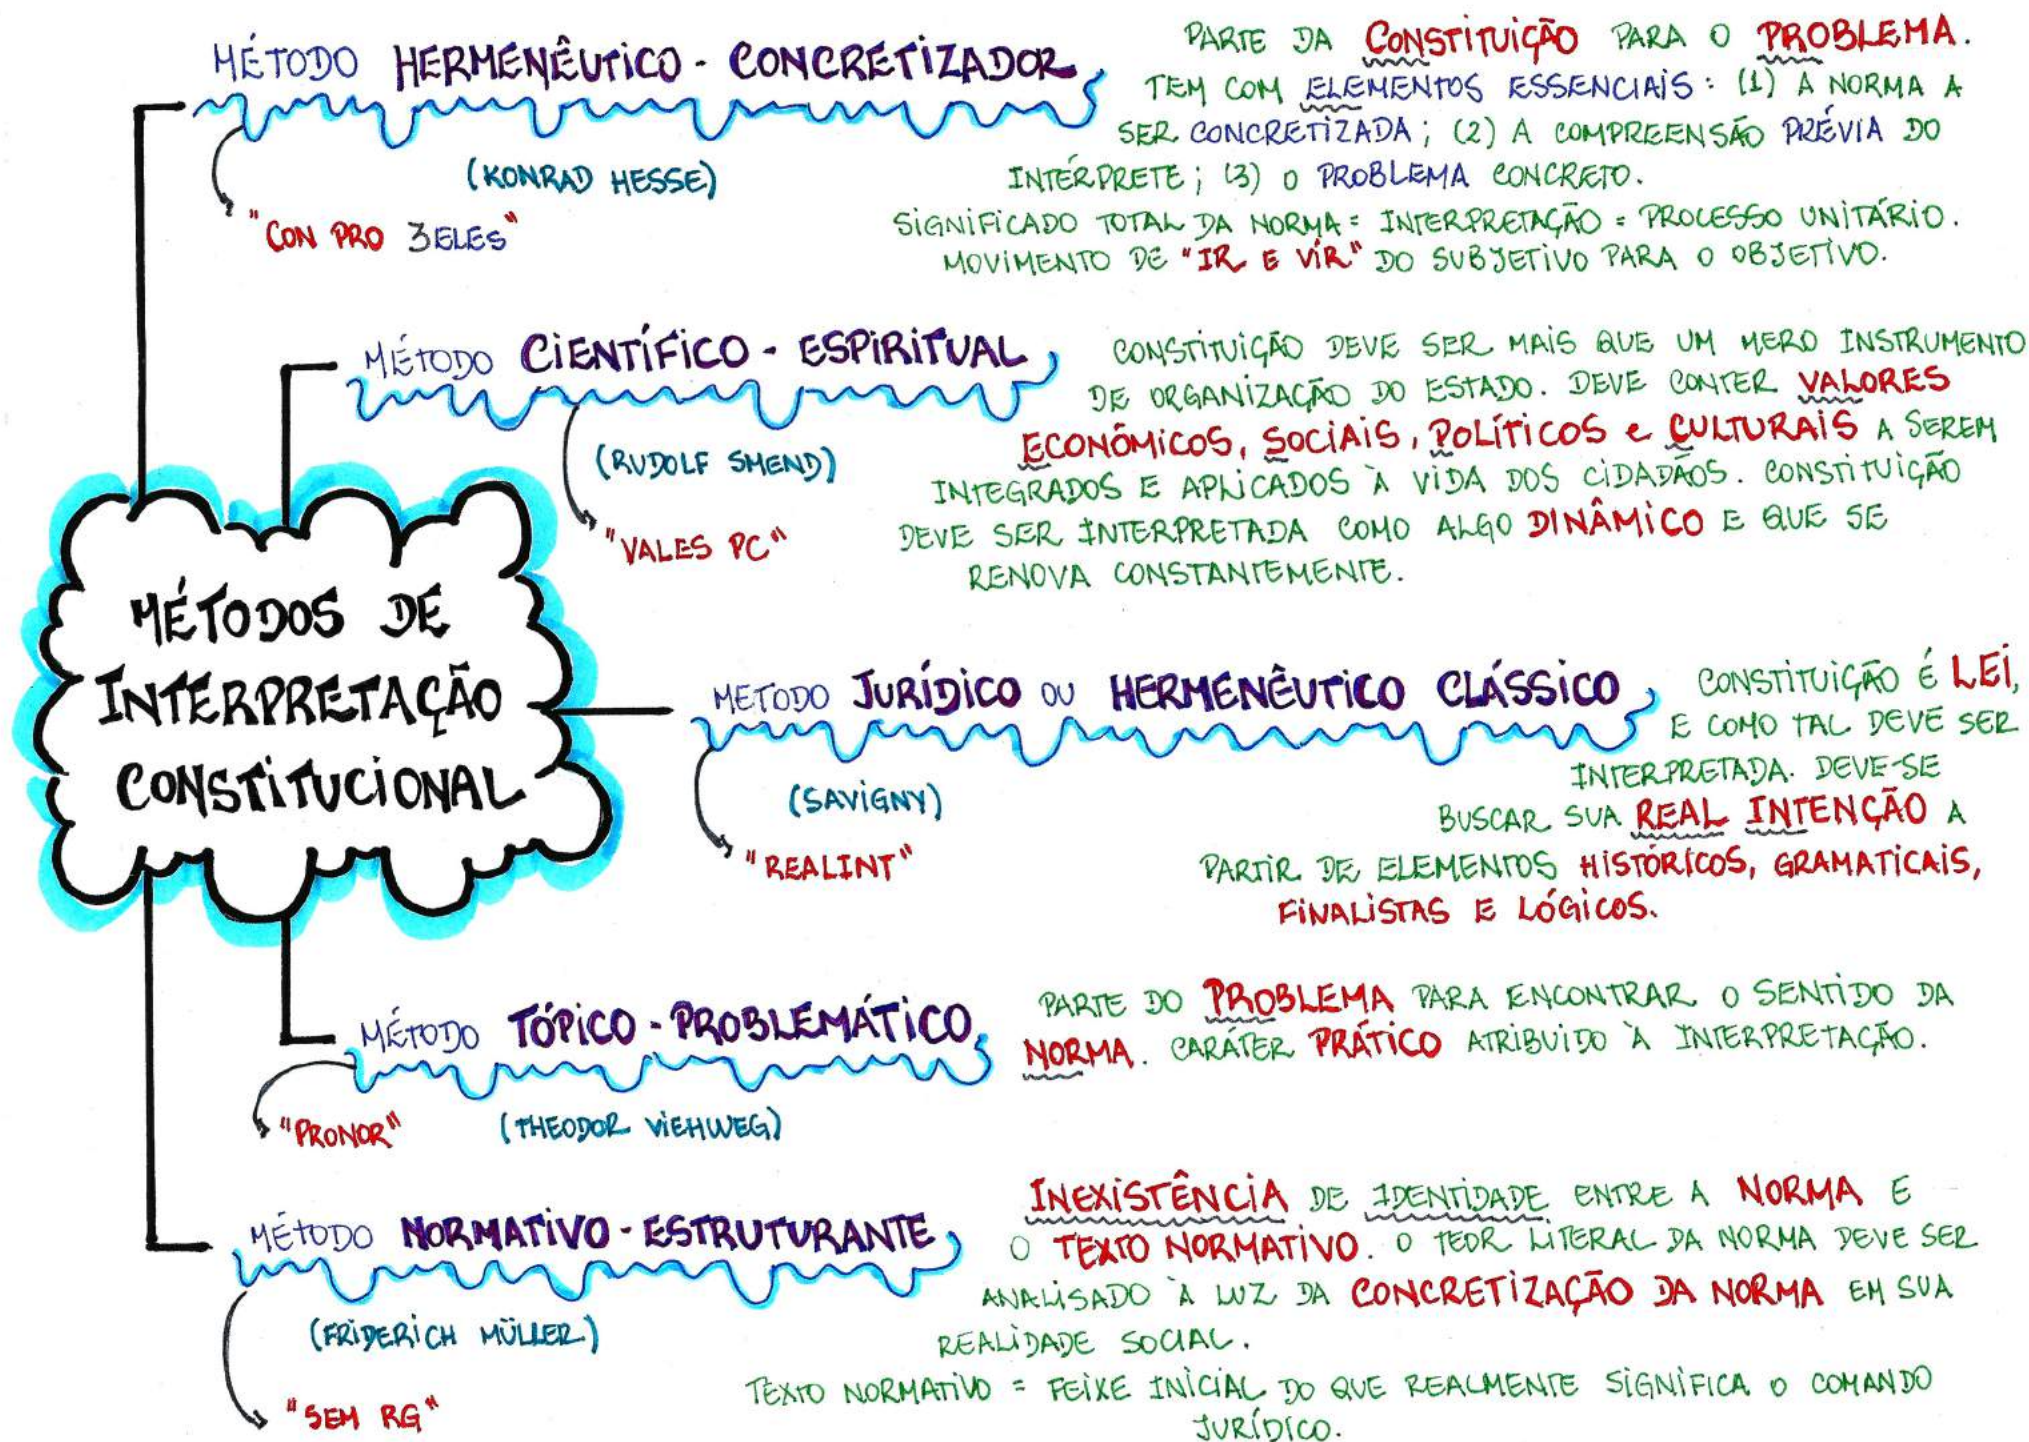 MÉTODO HERMENÊUTICO - CONCRETIZADOR
(KONRAD HESSE)
"CON PRO 3ELES"
PARTE DA CONSTITUIÇÃO PARA O PROBLEMA.
TEM COM ELEMENTOS ESSENCIAIS: (1) A NORMA A
SER CONCRETIZADA; (2) A COMPREENSÃO PRÉVIA DO
INTÉRPRETE; (3) O PROBLEMA CONCRETO.
SIGNIFICADO TOTAL DA NORMA = INTERPRETAÇÃO = PROCESSO UNITÁRIO.
MOVIMENTO DE "IR E VIR" DO SUBJETIVO PARA O OBJETIVO.
MÉTODO CIENTÍFICO - ESPIRITUAL
(RUDOLF SMEND)
"VALES PC"
CONSTITUIÇÃO DEVE SER MAIS QUE UM MERO INSTRUMENTO
DE ORGANIZAÇÃO DO ESTADO. DEVE CONTER VALORES
ECONÔMICOS, SOCIAIS, POLÍTICOS e CULTURAIS A SEREM
INTEGRADOS E APLICADOS À VIDA DOS CIDADÃOS. CONSTITUIÇÃO
DEVE SER INTERPRETADA COMO ALGO DINÂMICO E QUE SE
RENOVA CONSTANTEMENTE.
MÉTODOS DE
INTERPRETAÇÃO
CONSTITUCIONAL
METODO JURÍDICO OU HERMENÊUTICO CLÁSSICO
(SAVIGNY)
"REALINT"
CONSTITUIÇÃO É LEI,
E COMO TAL DEVE SER
INTERPRETADA. DEVE-SE
BUSCAR SUA REAL INTENÇÃO A
PARTIR DE ELEMENTOS HISTÓRICOS, GRAMATICAIS,
FINALISTAS E LÓGICOS.
MÉTODO TÓPICO - PROBLEMÁTICO
"PRONOR"
(THEODOR VIEHWEG)
PARTE DO PROBLEMA PARA ENCONTRAR O SENTIDO DA
NORMA. CARÁTER PRÁTICO ATRIBUIDO À INTERPRETAÇÃO.
MÉTODO NORMATIVO - ESTRUTURANTE
(FRIDERICH MÜLLER)
"SEM RG"
INEXISTÊNCIA DE IDENTIDADE ENTRE A NORMA E
O TEXTO NORMATIVO. O TEOR LITERAL DA NORMA DEVE SER
ANALISADO À LUZ DA CONCRETIZAÇÃO DA NORMA EM SUA
REALIDADE SOCIAL.
TEXTO NORMATIVO = FEIXE INICIAL DO QUE REALMENTE SIGNIFICA O COMANDO
JURÍDICO.